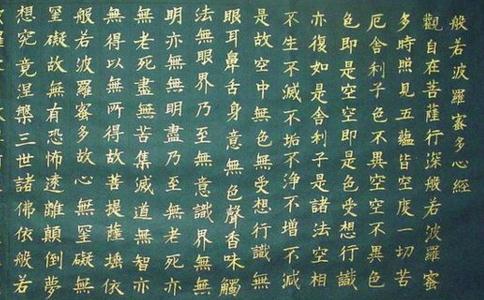 般若波羅蜜多心經
觀自在菩薩行深般若波羅蜜
多時照見五蘊皆空度一切苦
厄舍利子色不異空空不異色
色即是空空即是色受想行識
亦復如是舍利子是諸法空相
不生不滅不垢不淨不增不減
是故空中無色無受想行識無
眼耳鼻舌身意無色聲香味觸
法無眼界乃至無意識界無無
明亦無無明盡乃至無老死亦
無老死盡無苦集滅道無智亦
無得以無所得故菩提薩埵依
般若波羅蜜多故心無罣礙無
罣礙故無有恐怖遠離顛倒夢
想究竟涅槃三世諸佛依般若